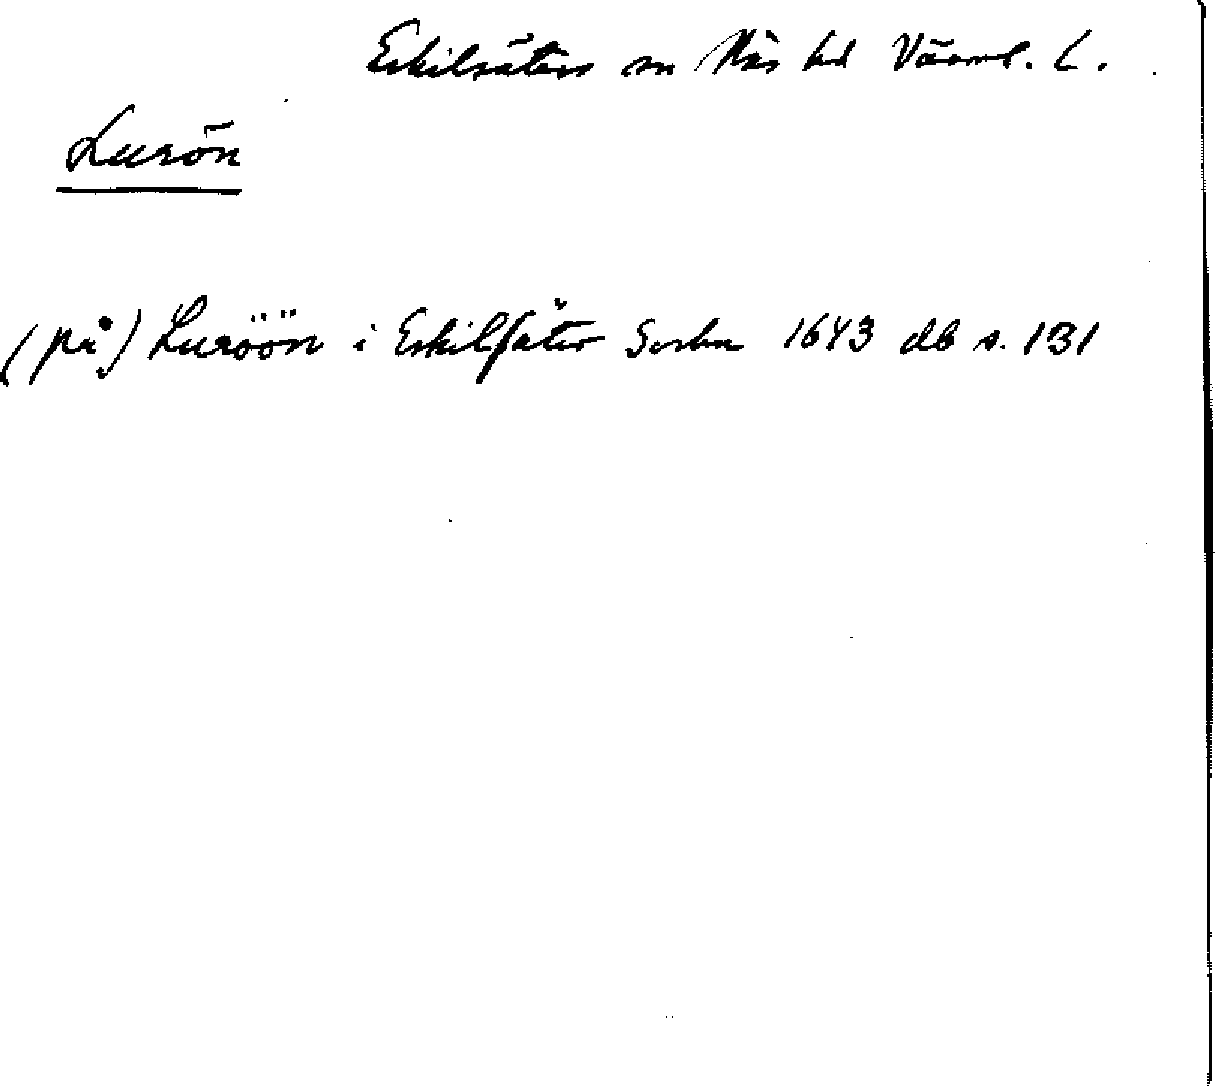 Eskilsäters sn Näs hd Värml. L.
Lurön
(på) Luröön i Eskilsäter Sochn 1643 db s. 131